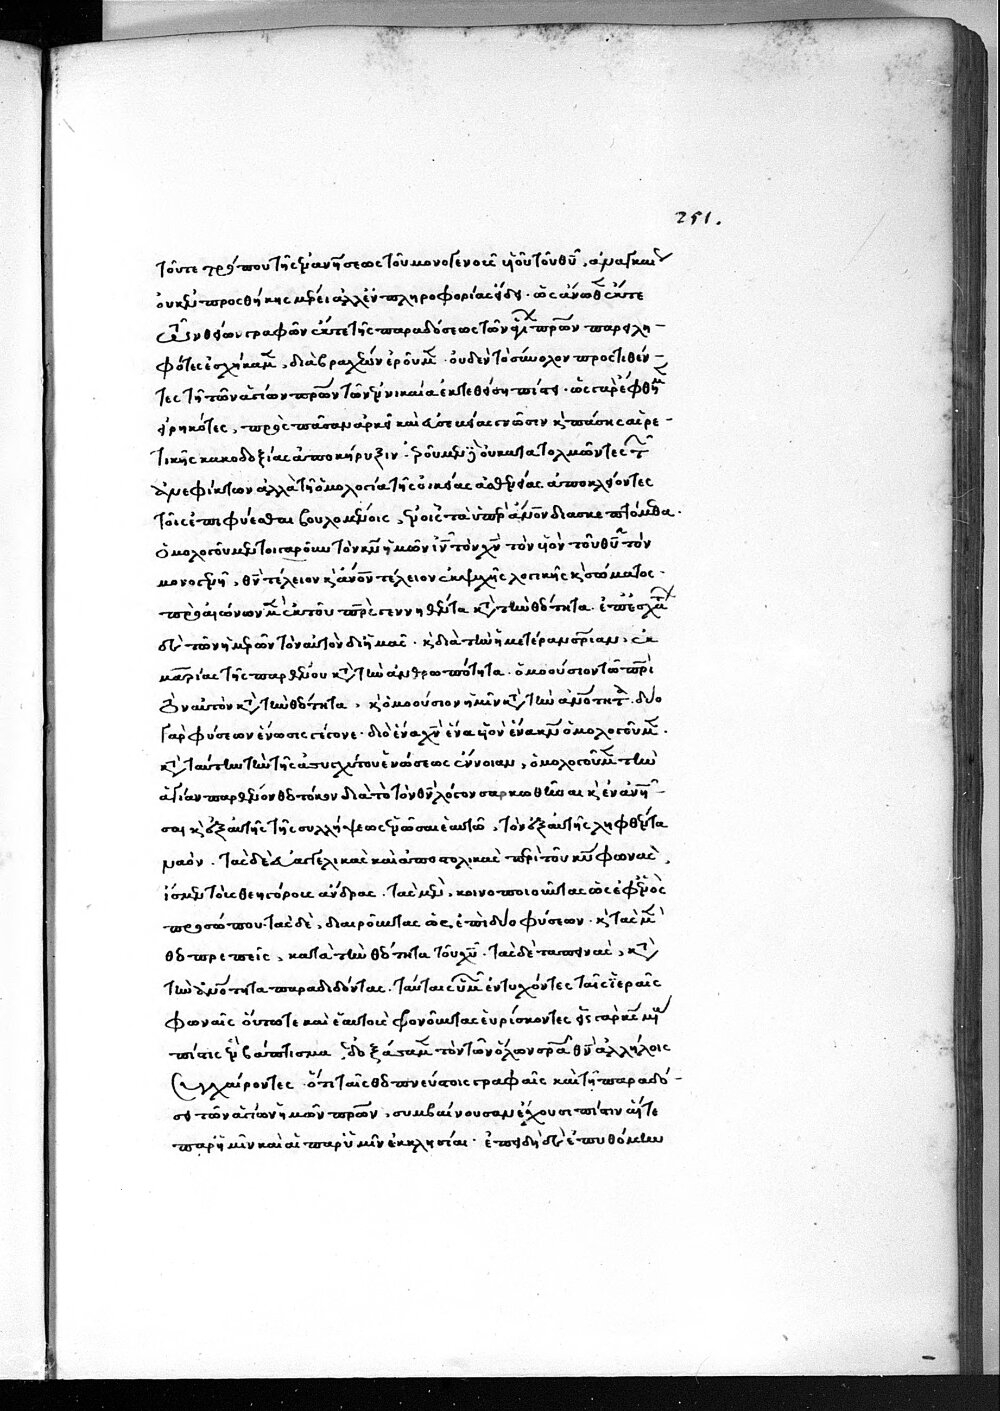 τοῦ τε τρόπου τῆς ἐνανήσεως τοῦ μονογενοῦς υἱοῦ τοῦ θυ, ἀναγκαίως
οὐκ ἐν προσθήκης μέρει ἀλλ' ἐν πληροφορίας εἴδει. ὡς ἄνωθεν ἔκ τε
τῶν θείων γραφῶν ἔκ τε τῆς παραδόσεως τῶν ἁγίων πρων παρειλη-
φότες ἐσχήκαμεν, διὰ βραχέων ἐροῦμεν. οὐδὲν τὸ σύνολον προστιθέν-
τες τῇ τῶν ἁγίων πρων τῶν ἐν νικαία ἐκτεθείση πίστει. ὡς γὰρ ἔφθημεν
εἰρηκότες, πρὸς πᾶσαν ἀρκεῖ καὶ εὐσεβείας γνῶσιν κ πάσης αἱρε-
τικῆς κακοδοξίας ἀποκήρυξιν. ἐροῦμεν δὲ οὐ κατατολμῶντες τῶν
ἀνεφίκτων ἀλλὰ τῇ ὁμολογία τῆς οἰκείας ἀσθενείας ἀποκλείοντες
τοῖς ἐπιφύεσθαι βουλομένοις, ἐν οἷς τὰ ὑπὲρ ἄνον διασκεπτόμεθα.
ὁμολογοῦμεν τοιγαροῦν τὸν κν ἡμῶν ιν τὸν χν τὸν υἱὸν τοῦ θυ τὸν
μονογενῆ, θν τέλειον κ ἄνον τέλειον ἐκ ψυχῆς λογικῆς κ σώματος.
πρὸ αἰώνων μὲν ἐκ τοῦ πρς γεννηθέντα κατὰ τὴν θεότητα. ἐπ' ἐσχάτων
δὲ τῶν ἡμερῶν τὸν αὐτὸν δι' ἡμᾶς. κ διὰ τὴν ἡμετέραν σριαν, ἐκ
μαρίας τῆς παρθένου κατὰ τὴν ἀνθρωπότητα. ὁμοούσιον τῶ πρὶ
τὸν αὐτὸν κατὰ τὴν θεότητα, κ ὁμοούσιον ἡμῖν κατὰ τὴν ἀνοτητα. δύο
γὰρ φύσεων ἕνωσις γέγονε. διὸ ἕνα χν ἕνα υἱὸν ἕνα κν ὁμολογοῦμεν.
κατὰ ταύτην τὴν τῆς ἀσυγχύτου ἑνώσεως ἔννοιαν, ὁμολογοῦμεν τὴν
ἁγίαν παρθένον θεοτόκον διὰ τὸ τὸν θν λόγον σαρκωθῆναι κ ἐνανη-
σαι κ ἐξ αὐτῆς τῆς συλλήψεως ἑνῶσαι ἑαυτῶ, τὸν ἐξ αὐτῆς ληφθέντα
ναόν. τὰς δὲ εὐαγγελικὰς καὶ ἀποστολικὰς περὶ τοῦ κυ φωνὰς,
ἴσμεν τοὺς θεηγόρους ἄνδρας. τὰς μὲν, κοινοποιοῦντας ὡς ἐφ' ἑνὸς
προσώπου. τὰς δὲ, διαιροῦντας ὡς ἐπὶ δύο φύσεων. κ τὰς μὲν
θεοπρεπεῖς, κατὰ τὴν θεότητα τοῦ χυ. τὰς δὲ ταπεινὰς, κατὰ
τὴν ἀνοτητα παραδιδόντας. ταύταις ὑμῶν ἐντυχόντες ταῖς ἱεραῖς
φωναῖς οὕτω τε καὶ ἑαυτοὺς φρονοῦντας εὑρίσκοντες εἷς γὰρ κς μία
πίστις ἓν βάπτισμα ἐδοξάσαμεν τὸν τῶν ὅλων σρα θν ἀλλήλοις
συγχαίροντες. ὅτι ταῖς θεοπνεύστοις γραφαῖς καὶ τῇ παραδό-
σει τῶν ἁγίων ἡμῶν πρων, συμβαίνουσαν ἔχουσι πίστιν αἵ τε
παρ' ἡμῖν καὶ αἱ παρ' ὑμῖν ἐκκλησίαι. ἐπειδὴ δὲ ἐπυθόμην
251.